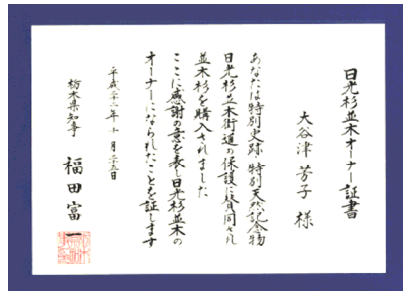 日光杉並木オーナー証書
大谷津芳子 様
あなたは特別史跡 特別天然記念物
日光杉並木街道の保護に賛同され
並木杉を購入されました
ここに感謝の意を表し日光杉並木の
オーナーになられたことを証します
平成二十二年十月二十五日
栃木県知事 福田富一